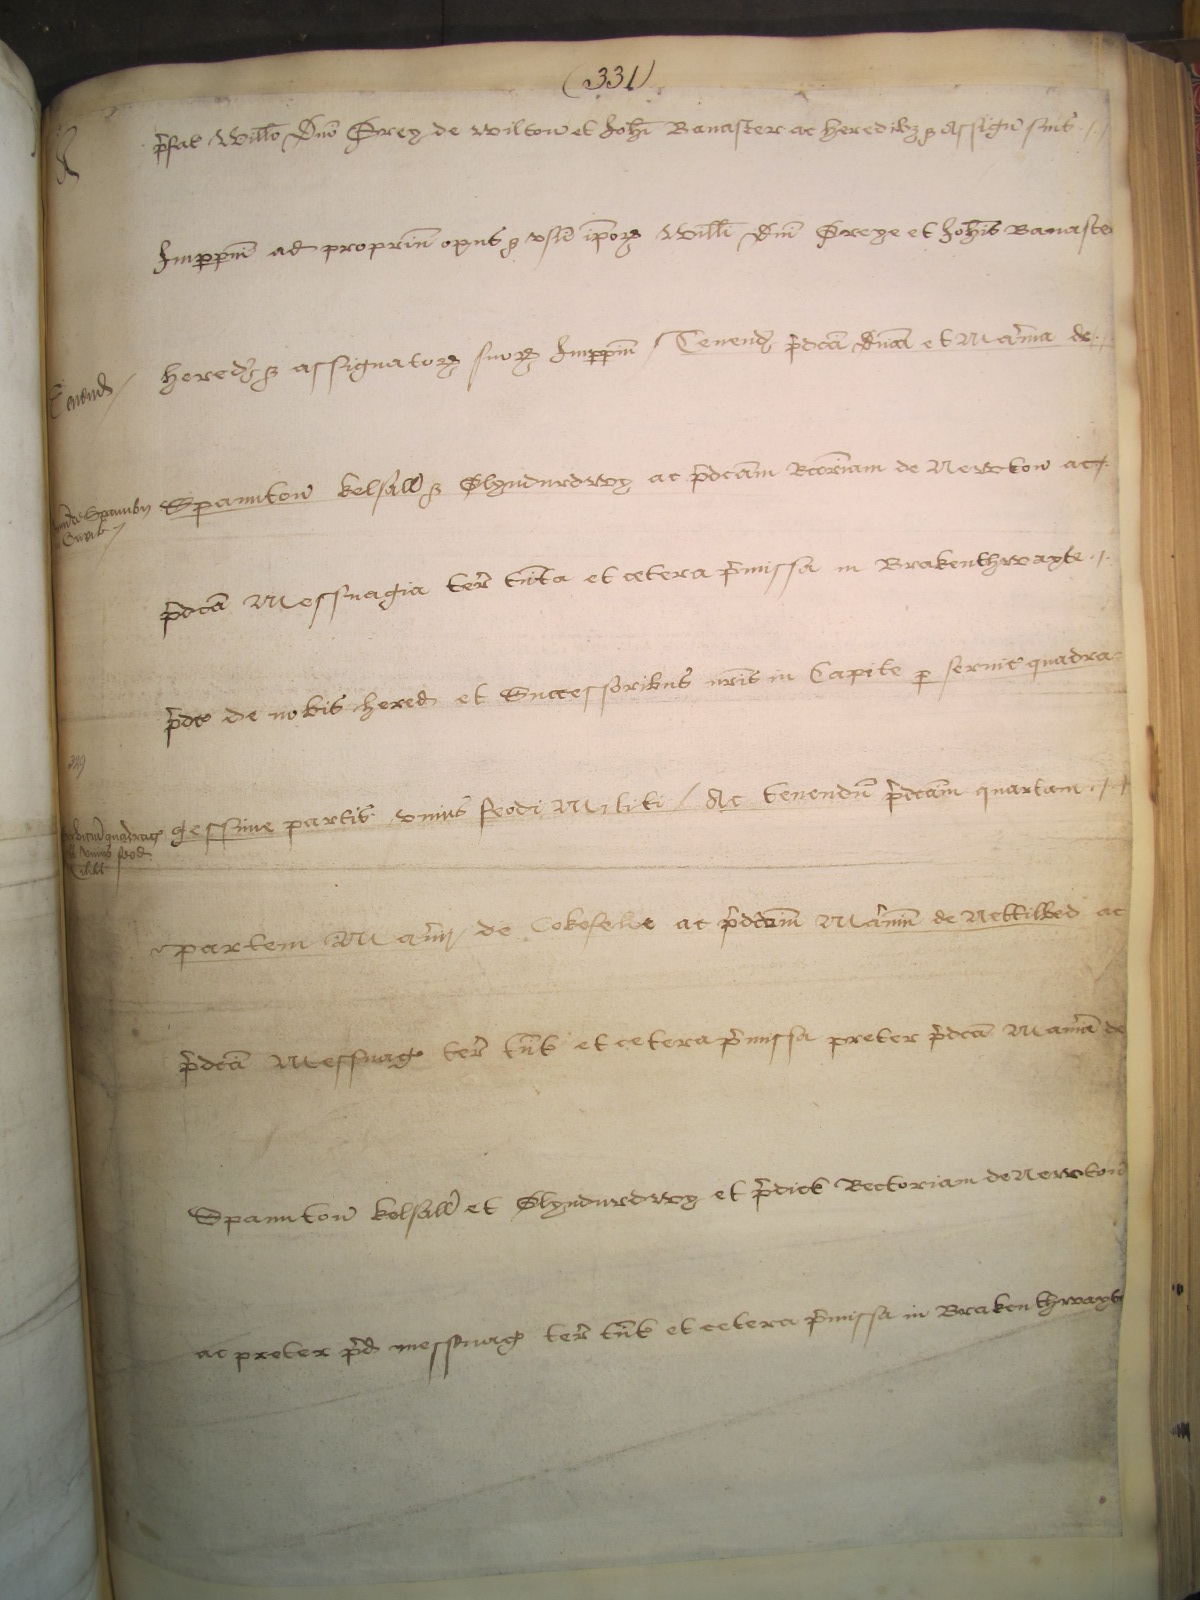 (331)
p̄fat Willo Dn̄o Grey de Wilton et Joh̄i Banaster ac heredibȝ & Assign̄ suis
Imp̱p̱m̄ ad propriū opus & usū ip̄oꝝ Willi Dn̄i Greye et Joh̄is Banaster
hered & assignatoꝝ suoꝝ Imp̱p̱m̄ / Tenend p̄dc̄a Dn̄ca et Man̄ia de
Tenend /
Spannton kelsall & Glyndurdwy ac p̄dc̄am Rc̄oriam de Newton ac
p̄dc̄a Messuagia ter̄ tn̄ta et cetera p̄missa in Brakenthwayte
p̄dc̄ de nobis hered et Successoribus nr̄is in Capite p̱ seruic̄ quadra
329
gessime partis unius feodi Militis / Ac tenendū p̄dc̄am quartam
unius feod
partem Man̄ij de Cokefelde ac p̄dc̄um Man̄iū de Nettilbed ac
p̄dc̄a Messuag ter̄ tn̄t et cetera p̄missa preter p̄dc̄a Man̄ia de
Spannton kelsall et Glyndurdwy et p̄dict Rectoriam de Newton
ac preter p̄d messuag ter̄ tn̄t et cetera p̄missa in Brakenthwayte